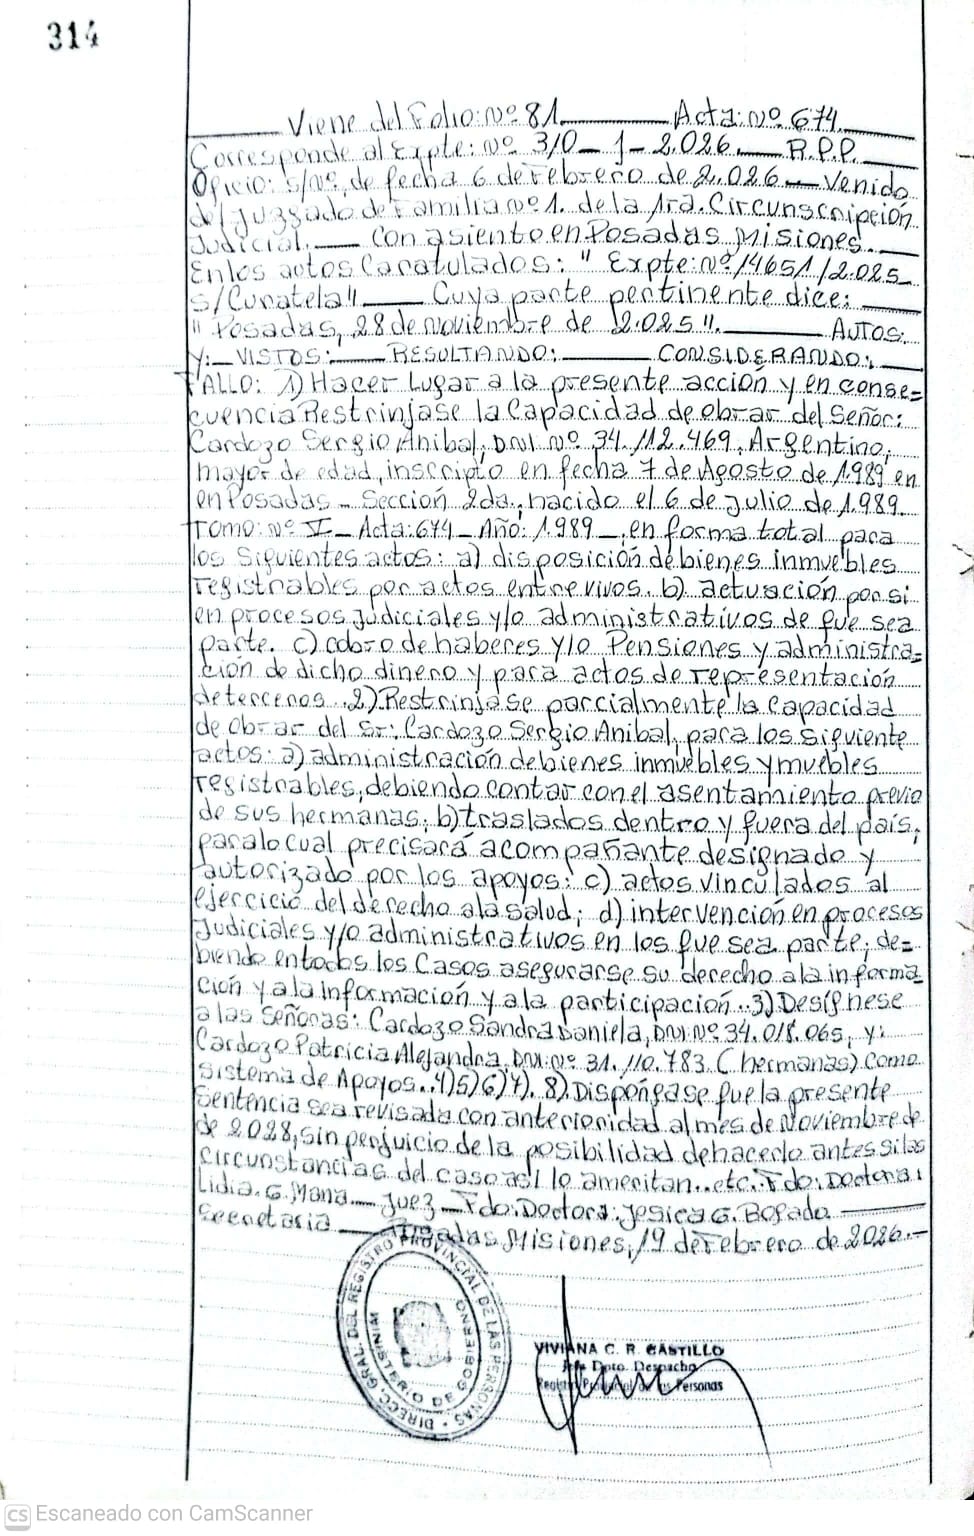 314
Viene del Folio: Nº 81. Acta: Nº 674.
Corresponde al Expte: Nº 310-J-2.026. R.P.P.
Oficio: s/Nº, de fecha 6 de Febrero de 2.026 — Venido
del Juzgado de Familia Nº 1. de la 1ra. Circunscripción
Judicial. — con asiento en Posadas Misiones.
En los autos Caratulados: " Expte: Nº 14651/2.025
s/Curatela" — Cuya parte pertinente dice:
" Posadas, 28 de Noviembre de 2.025". — AUTOS:
Y: — VISTOS: — RESULTANDO: — CONSIDERANDO:
FALLO: 1) Hacer Lugar a la presente acción y en conse=
cuencia Restrinjase la Capacidad de obrar del Señor:
Cardozo Sergio Anibal, DNI. Nº 34.112.469, Argentino,
mayor de edad, inscripto en fecha 7 de Agosto de 1.989 en
en Posadas - Sección 2da., nacido el 6 de Julio de 1.989.
Tomo: Nº V - Acta: 674 - Año: 1.989 -, en forma total para
los Siguientes actos: a) disposición de bienes inmuebles
registrables por actos entre vivos. b) actuación por si
en procesos Judiciales y/o administrativos de que sea
parte. c) cobro de haberes y/o Pensiones y administra=
ción de dicho dinero y para actos de representación
de terceros .. 2) Restrinjase parcialmente la Capacidad
de Obrar del Sr: Cardozo Sergio Anibal, para los siguiente
actos: a) administración de bienes inmuebles y muebles
registrables, debiendo contar con el asentamiento previo
de sus hermanas; b) traslados dentro y fuera del país,
para lo cual precisará acompañante designado y
autorizado por los apoyos: c) actos vinculados al
ejercicio del derecho a la salud; d) intervención en procesos
Judiciales y/o administrativos en los que sea parte; de=
biendo en todos los Casos asegurarse su derecho a la informa
ción y a la información y a la participación .. 3) Desígnese
a las Señoras: Cardozo Sandra Daniela, DNI. Nº 34.018.065, y:
Cardozo Patricia Alejandra, DNI. Nº 31.110.783. (hermanas) Como
Sistema de Apoyos.. 4) 5) 6) 7). 8) Dispóngase que la presente
Sentencia sea revisada con anterioridad al mes de Noviembre de
de 2028, sin perjuicio de la posibilidad de hacerlo antes si las
Circunstancias del caso así lo ameritan.. etc. Fdo: Doctora:
Lidia. G. Mana — Juez — Fdo: Doctora: Jesica G. Bogado
Secretaria — Posadas Misiones, 19 de Febrero de 2026.-
DIRECC. GRAL. DEL REGISTRO PROVINCIAL DE LAS PERSONAS
MINISTERIO DE GOBIERNO
VIVIANA C. R. CASTILLO
Jefe Dpto. Despacho
Registro Provincial de las Personas
CS Escaneado con CamScanner